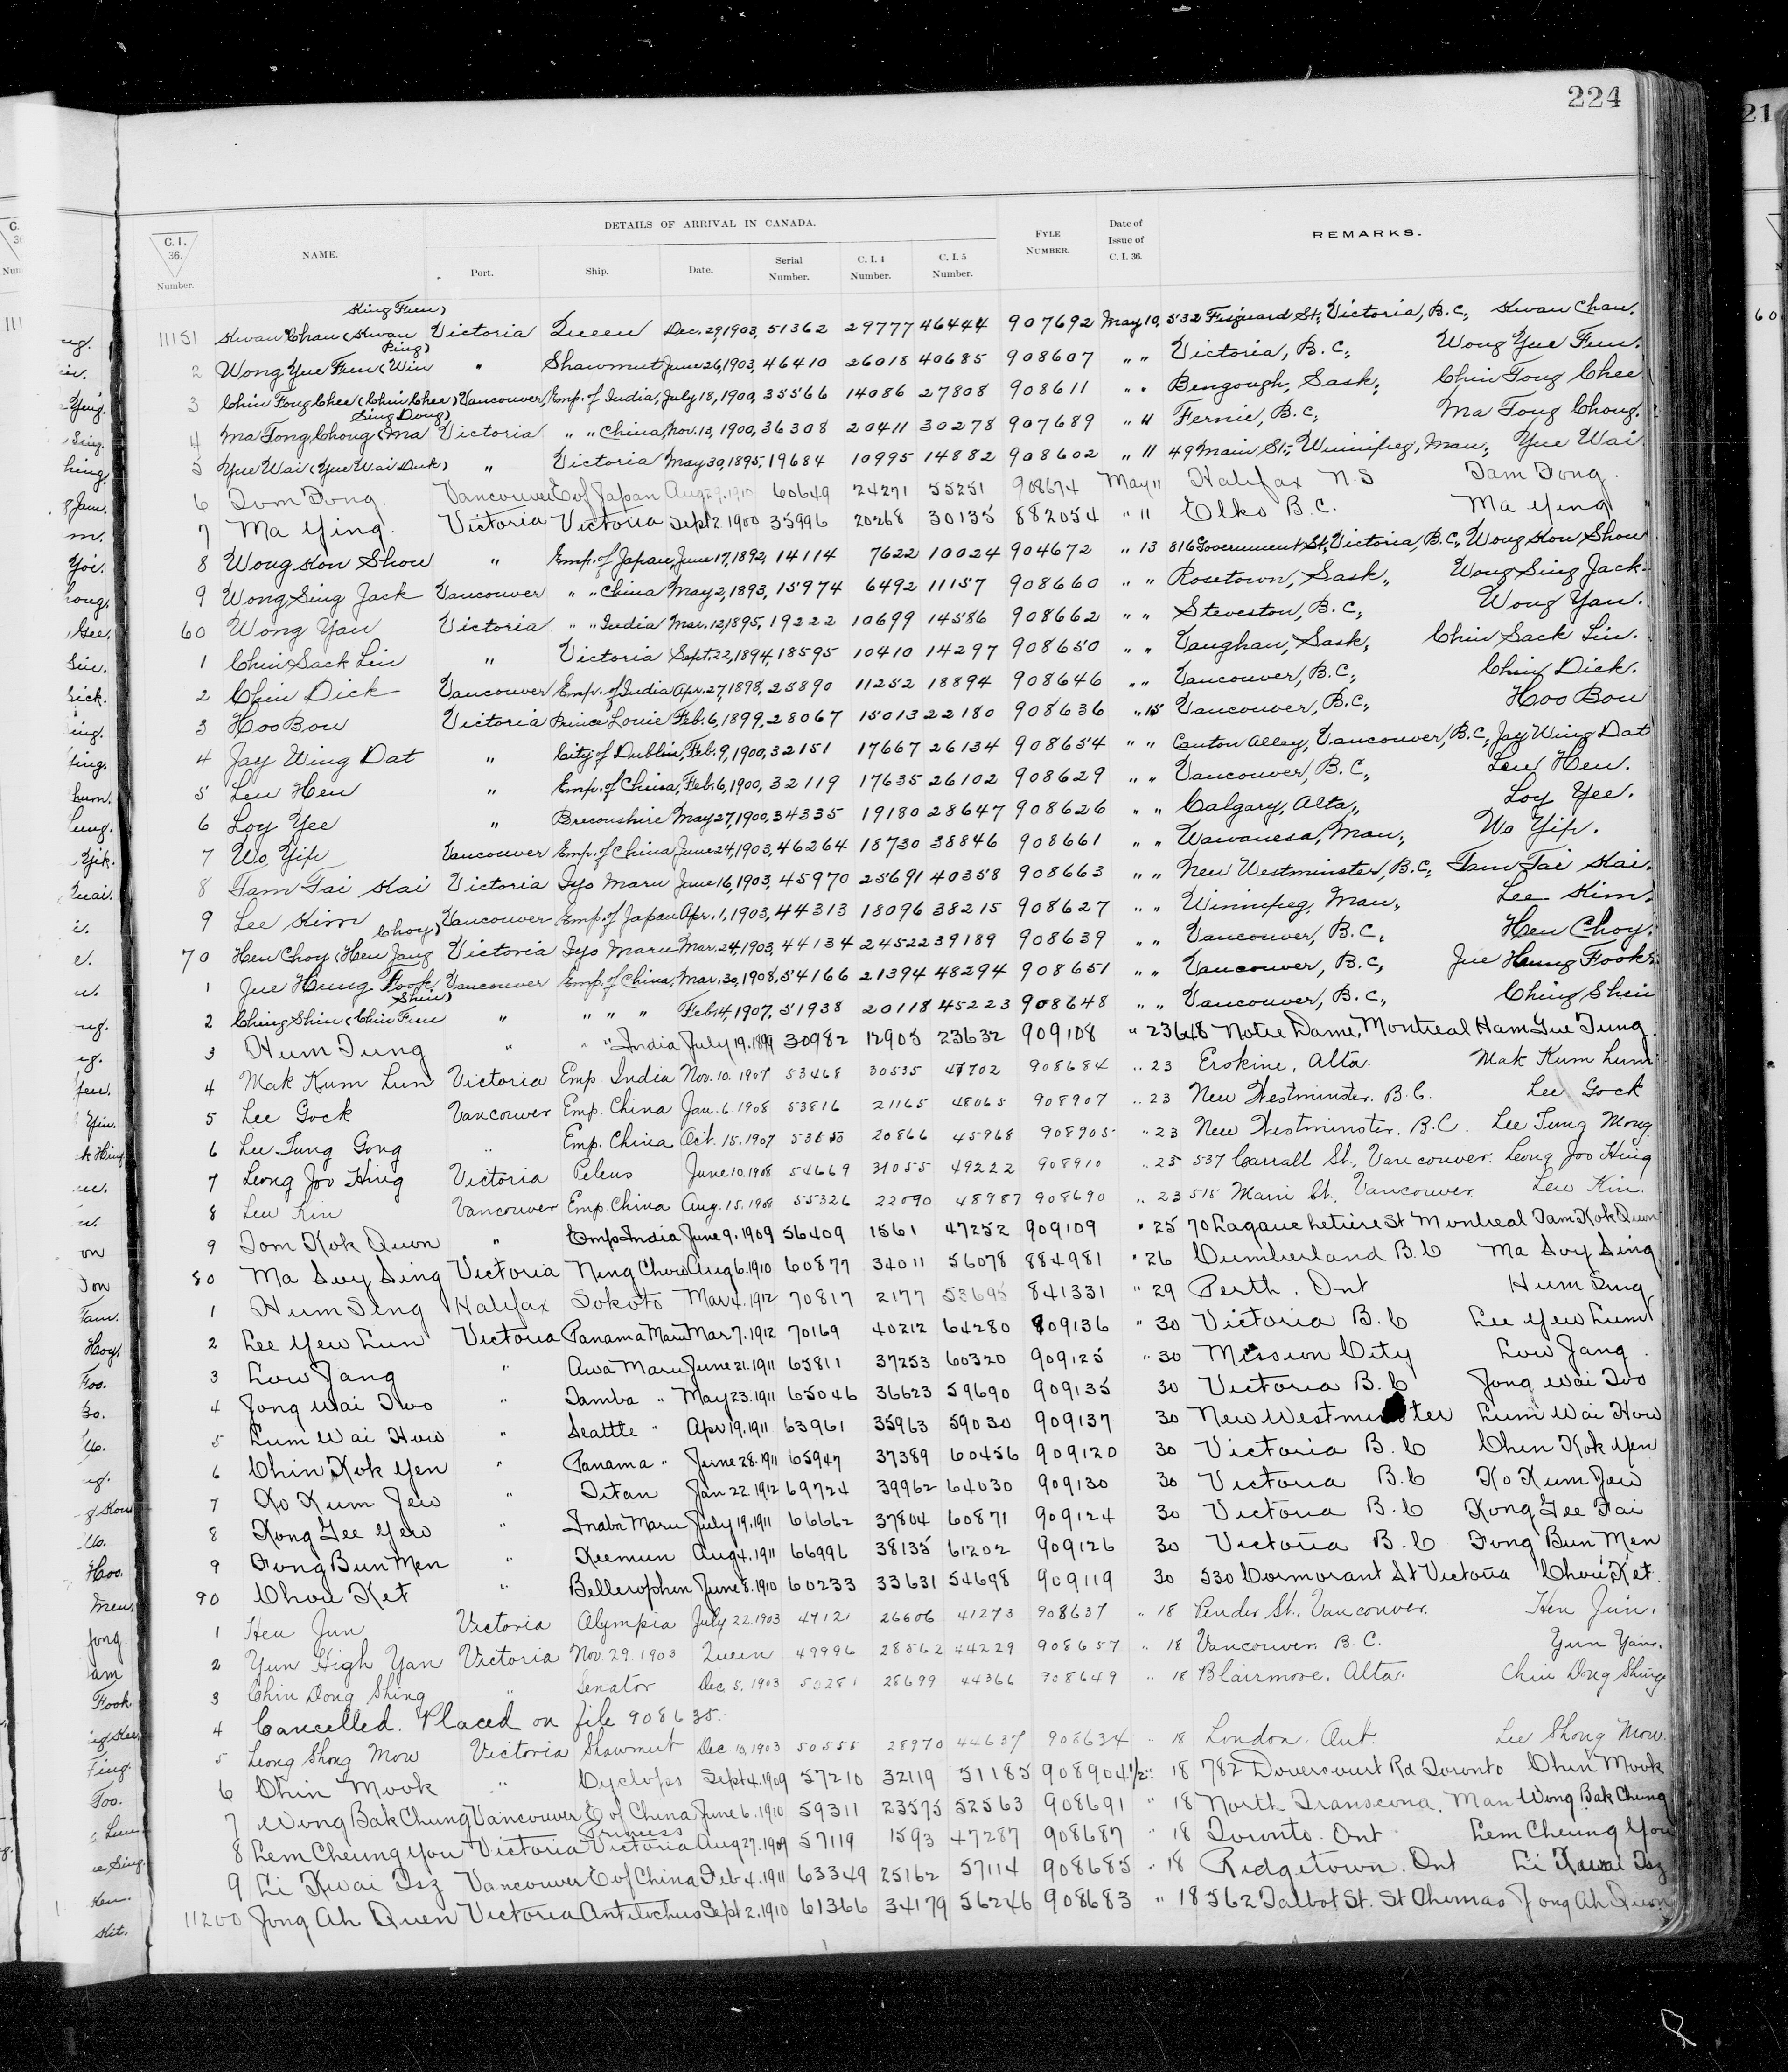 224
DETAILS OF ARRIVAL IN CANADA.
C. I. 36. Number. NAME. Port. Ship. Date. Serial Number. C. I. 4 Number. C. I. 5 Number. FYLE NUMBER. Date of Issue of C. I. 36. REMARKS.
King Fun)
11151 Kwan Chau (Kwan Victoria Queen Dec. 29, 1903, 51362 29777 46444 907692 May 10, 532 Fisguard St., Victoria, B.C., Kwan Chau.
Ping)
2 Wong Yue Fun (Win " Shawmut June 26, 1903, 46410 26018 40685 908607 " " Victoria, B.C., Wong Yue Fun.
3 Chin Fong Chee (Chin Chee) Vancouver, Emp. of India, July 18, 1900, 35566 14086 27808 908611 " " Bengough, Sask., Chin Fong Chee
Sing Dong)
4 Ma Tong Chong (Ma Victoria " " China, Nov. 13, 1900, 36308 20411 30278 907689 " 11 Fernie, B.C., Ma Tong Chong.
5 Yue Wai (Yue Wai Duk) " Victoria May 30, 1895, 19684 10995 14882 908602 " 11 49 Main St., Winnipeg, Man., Yue Wai
6 Tom Tong. Vancouver E of Japan Aug 29. 1910 60649 24271 55251 908674 May 11 Halifax N.S Tam Tong.
7 Ma Ying. Victoria Victoria Sept 2 1900 35996 20268 30135 882054 " 11 Elko B.C. Ma Ying
8 Wong Kon Shou " Emp. of Japan, June 17, 1892, 14114 7622 10024 904672 " 13 816 Government St., Victoria, B.C., Wong Kon Shou
9 Wong Sing Jack Vancouver " " China May 2, 1893, 15974 6492 11157 908660 " " Rosetown, Sask., Wong Sing Jack.
60 Wong Yan Victoria " " India Mar. 12, 1895, 19222 10699 14586 908662 " " Steveston, B.C., Wong Yan.
1 Chin Sack Lin " Victoria Sept. 22, 1894, 18595 10410 14297 908650 " " Vaughan, Sask., Chin Sack Lin.
2 Chin Dick Vancouver Emp. of India Apr. 27, 1898, 25890 11252 18894 908646 " " Vancouver, B.C., Chin Dick.
3 Hoo Bou Victoria Prince Louie Feb. 6, 1899, 28067 15013 22180 908636 " 15 Vancouver, B.C., Hoo Bou
4 Jay Wing Dat " City of Dublin, Feb. 9, 1900, 32151 17667 26134 908654 " " Canton Alley, Vancouver, B.C., Jay Wing Dat
5 Leu Heu " Emp. of China, Feb. 6, 1900, 32119 17635 26102 908629 " " Vancouver, B.C., Leu Heu.
6 Loy Yee " Breconshire May 27, 1900, 34335 19180 28647 908626 " " Calgary, Alta., Loy Yee.
7 Wo Yip Vancouver Emp. of China June 24, 1903, 46264 18730 38846 908661 " " Wawanesa, Man., Wo Yip.
8 Tam Tai Kai Victoria Iyo Maru June 16, 1903, 45970 25691 40358 908663 " " New Westminster, B.C., Tam Tai Kai.
9 Lee Kim Vancouver Emp. of Japan Apr. 1, 1903, 44313 18096 38215 908627 " " Winnipeg, Man., Lee Kim.
Choy)
70 Heu Choy (Heu Jang Victoria Iyo Maru Mar. 24, 1903, 44134 24522 39189 908639 " " Vancouver, B.C., Heu Choy.
1 Jue Hung Fook Vancouver Emp. of China, Mar. 30, 1908, 54166 21394 48294 908651 " " Vancouver, B.C., Jue Hung Fook.
Shin)
2 Ching Shin (Chin Fun " " " " Feb. 4, 1907, 51938 20118 45223 908648 " " Vancouver, B.C., Ching Shin
3 Hum Tung " " " India July 19. 1899 30982 12905 23632 909108 " 23 648 Notre Dame, Montreal Ham Yue Tung.
4 Mak Kum Lun Victoria Emp India Nov. 10. 1907 53468 30535 47702 908684 " 23 Erskine, Alta. Mak Kum Lum
5 Lee Gock Vancouver Emp. China Jan. 6. 1908 53816 21165 48065 908907 " 23 New Westminster. B.C. Lee Gock
6 Lee Tung Gong " Emp. China Oct. 15. 1907 20866 45968 908905 " 23 New Westminster. B.C. Lee Tung Mong
7 Leong Joo Hing Victoria Peleus June 10. 1908 54669 31055 49222 908910 " 25 537 Carrall St., Vancouver. Leong Joo Hing
8 Lew Kin Vancouver Emp China Aug. 15. 1908 55326 22090 48987 908690 " 23 515 Main St., Vancouver. Lew Kin.
9 Tom Kok Quon " Emp India June 9. 1909 56409 1561 47252 909109 " 25 70 Lagauchetiere St Montreal Tam Kok Quon
80 Ma Suy Sing Victoria Ning Chow Aug 6. 1910 60877 34011 56078 884981 " 26 Cumberland B.C Ma Suy Sing
1 Hum Sing Halifax Sokoto Mar 4. 1912 70817 2177 53695 841331 " 29 Perth. Ont Hum Sing
2 Lee Yew Lun Victoria Panama Maru Mar 7. 1912 70169 40212 64280 909136 " 30 Victoria B.C Lee Yew Lum
3 Low Jang " Awa Maru June 21. 1911 65811 37253 60320 909125 " 30 Mission City Low Jang.
4 Jong Wai Two " Tamba " May 23. 1911 65046 36623 59690 909135 30 Victoria B.C Jong Wai Two
5 Lum Wai How " Seattle " Apr 19. 1911 63961 35963 59030 909137 30 New Westminster Lum Wai How
6 Chin Kok Yen " Panama " June 28. 1911 65947 37389 60456 909120 30 Victoria B.C Chin Kok Yen
7 Ko Kum Jew " Titan Jan 22. 1912 69724 39962 64030 909130 30 Victoria B.C Ko Kum Jew
8 Kong Gee Yew " Inaba Maru July 19. 1911 66662 37804 60871 909124 30 Victoria B.C Kong Gee Tai
9 Fong Bun Men " Keemun Aug 4. 1911 66996 38135 61202 909126 30 Victoria B.C Fong Bun Men
90 Chou Ket " Bellerophen June 8. 1910 60233 33631 54698 909119 30 530 Cormorant St Victoria Chou Ket.
1 Heu Jun Victoria Olympia July 22. 1903 47121 26606 41273 908637 " 18 Pender St., Vancouver. Heu Jun.
2 Yun High Yan Victoria Nov. 29. 1903 Queen 49996 28562 44229 908657 " 18 Vancouver. B.C. Yun Yan.
3 Chin Dong Shing " Senator Dec. 5. 1903 50281 28699 44366 908649 " 18 Blairmore, Alta. Chin Dong Shing
4 Cancelled. Placed on file 908635.
5 Leong Shong Mow Victoria Shawmut Dec. 10, 1903 50555 28970 44637 908634 " 18 London. Ont. Lee Shong Mow.
6 Chin Mook " Cyclops Sept 4. 1909 57210 32119 51185 908904½ " 18 782 Dovercourt Rd Toronto Chin Mook
7 Wong Bak Chung Vancouver E of China June 6. 1910 59311 23575 52563 908691 " 18 North Transcona, Man Wong Bak Chung
Princess
8 Lem Cheung You Victoria Victoria Aug 27. 1909 57119 1593 47287 908687 " 18 Toronto. Ont Lem Cheung You
9 Li Kwai Tsz Vancouver E of China Feb 4. 1911 63349 25162 57114 908685 " 18 Ridgetown. Ont Li Kwai Tsz
11200 Jong Ah Quen Victoria Antilochus Sept 2. 1910 61366 34179 56246 908683 " 18 562 Talbot St. St Thomas Jong Ah Quen